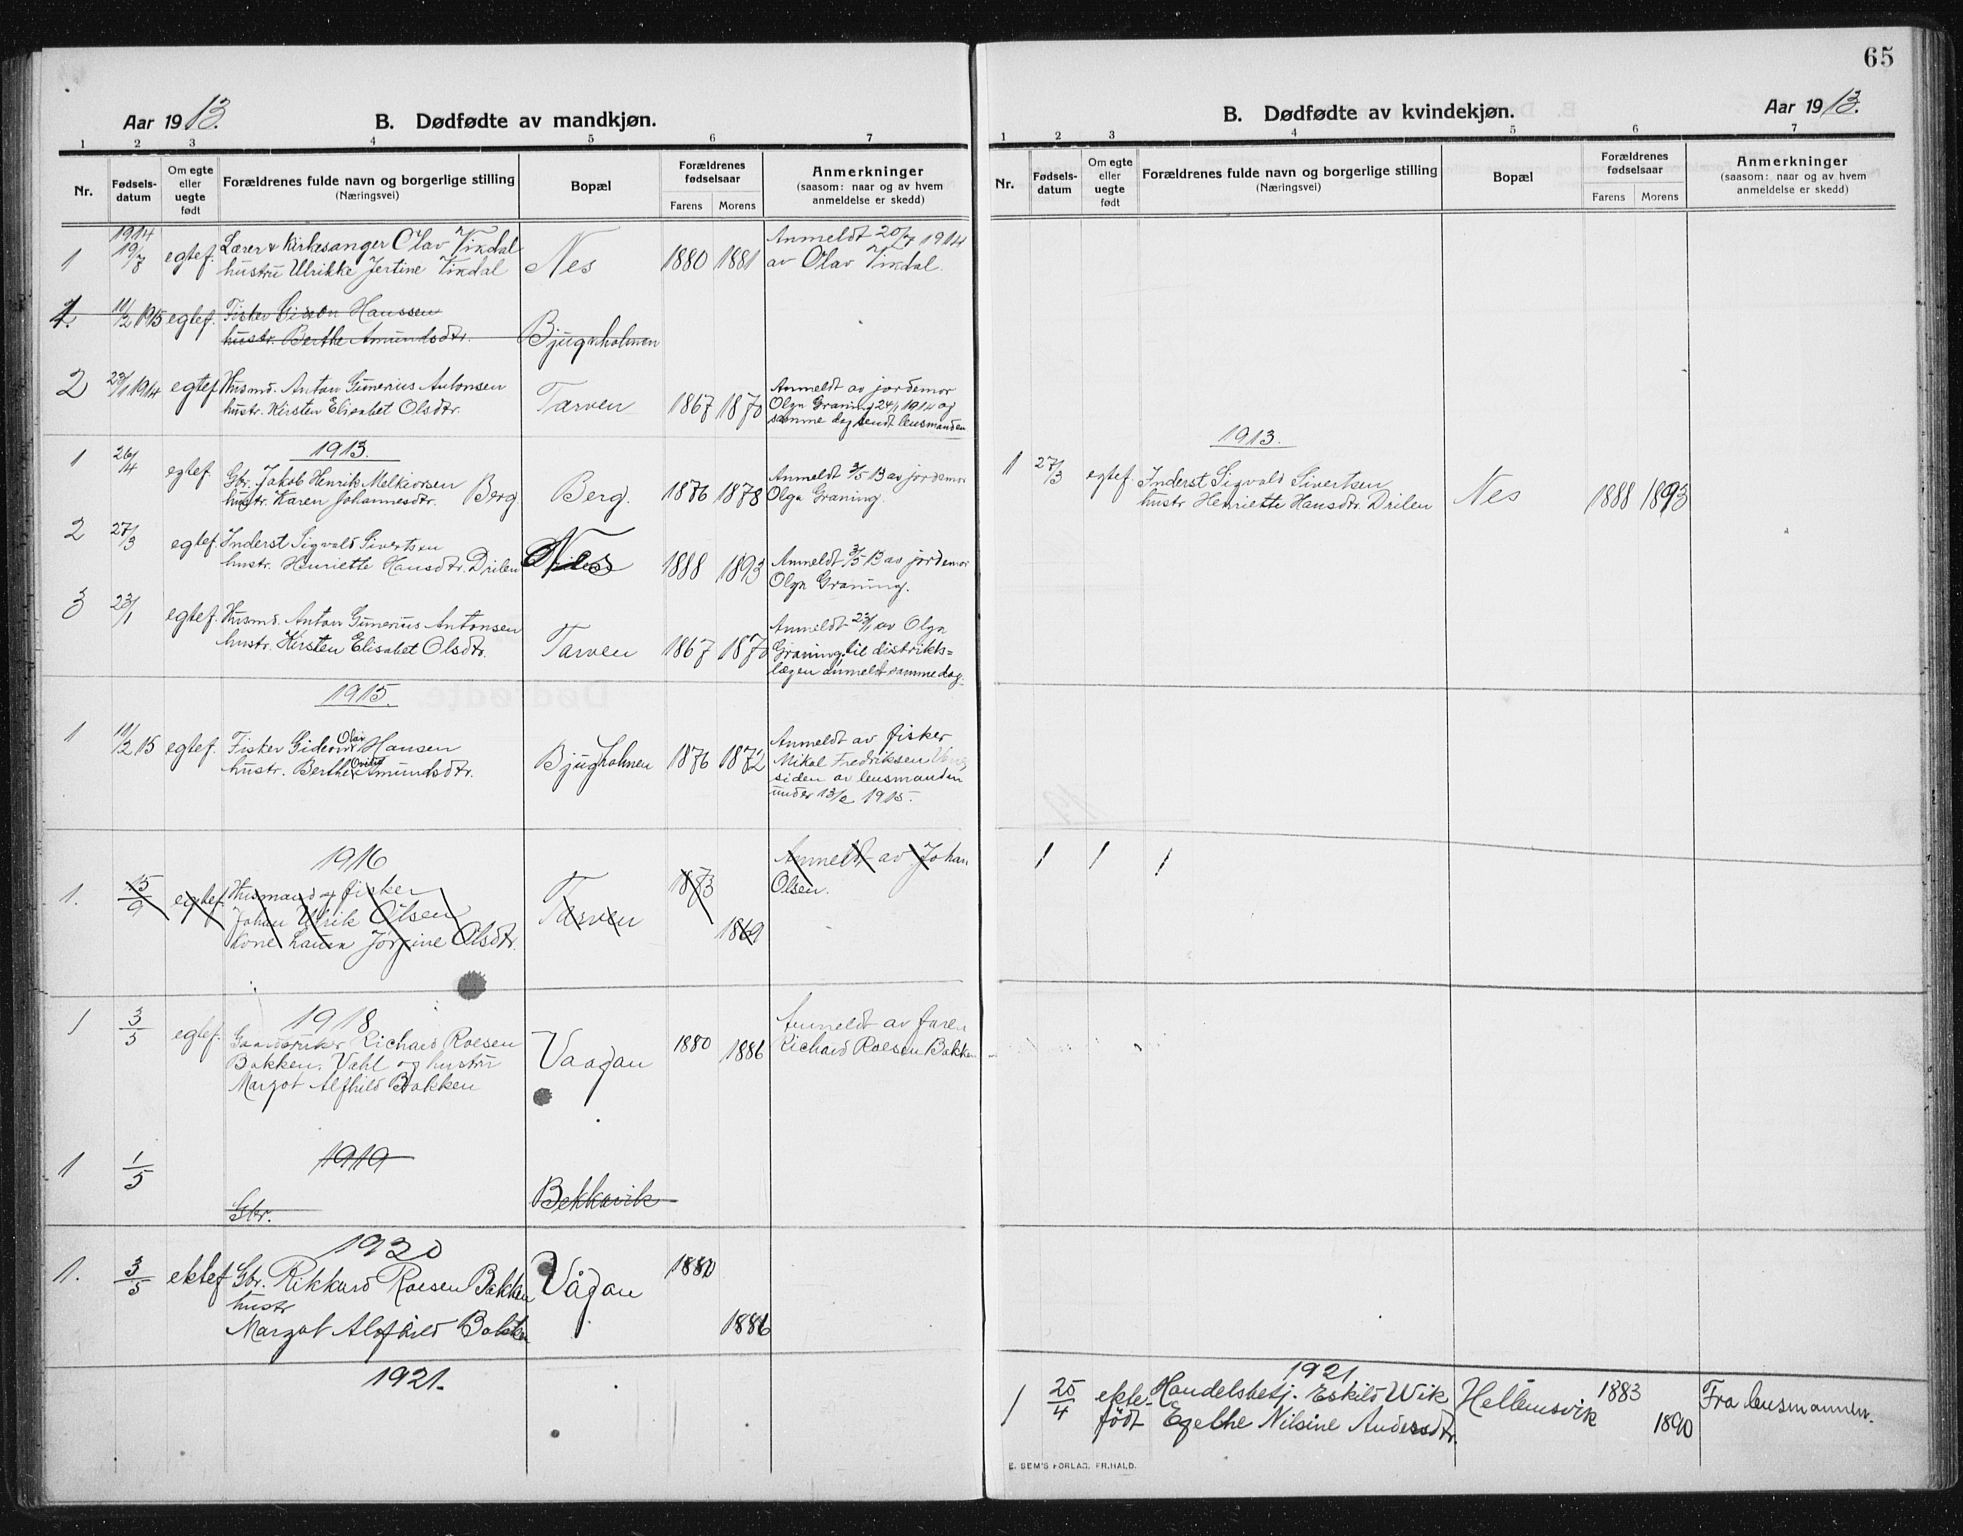 65
Aar 1913.
B. Dødfødte av mandkjøn.
1 2 3 4 5 6 7
Nr.
Fødsels-
datum
Om egte
eller
uegte
født
Forældrenes fulde navn og borgerlige stilling
(Næringsvei)
Bopæl
Forældrenes
fødselsaar
Farens Morens
Anmerkninger
(saasom: naar og av hvem
anmeldelse er skedd)
1914
1 19/7 egtef. Lærer & Kirkesanger Olav Vindal Nes 1880 1881 Anmeldt 20/7 1914
hustru Ulrikke Jertine Vindal av Olav Vindal.
1. 11/2 1915 egtef. Fisker Gideon Hanssen
hustr. Berthe Amundsdtr. Bjugnholmen
2 23/1 1914 egtef. Husmd. Anton Gunerius Antonsen Tarven 1867 1870 Anmeldt av jordemor
hustr. Kirsten Elisabet Olsdtr. Olga Graning 24/1 1914 og
samme dag sendt lensmanden
1913.
1 26/4 egtef. Gbr. Jakob Henrik Melkiorsen Berg Berg. 1876 1878 Anmeldt 3/5 13 av jordemor
hustr. Karen Johannesdtr. Olga Graning.
2 27/3 egtef. Inderst Sigvald Sivertsen Nes 1888 1893 Anmeldt 3/5 13 av jordemor
hustr. Henriette Hansdtr. Drilen Olga Graning.
3 23/1 egtef. Husmd. Anton Gunerius Antonsen Tarven 1867 1870 Anmeldt 23/1 av Olga
hustr. Kirsten Elisabet Olsdtr. Graning. til distrikts-
lægen anmeldt samme dag.
1915.
1 11/2 15 egtef. Fisker Gideon Olav Hansen Bjugholmen 1876 1872 Anmeldt av fisker
hustr. Berthe Amundsdtr. Mikal Fredriksen
siden av lensmanden
under 13/2 1915.
1916
1. 15/9 egtef. Husmand og fisker Tarven 1873 Anmeldt av Johan
Johan Ulrik Olsen Olsen.
Kone Laura Jørgine Olsdtr. 1869
1918
1 3/5 egtef. Gaardbruker Richard Roesen Vaagan 1880 1886 Anmeldt av faren
Bakken, Vahl og hustru Richard Roesen Bakken
Margot Alfhild Bakken
1919
1 1/5 Gbr. Bekkavik
1920
1. 3/5 ektef. Gbr. Rikkard Roesen Bakken Vågan 1880
hustr
Margot Alofhild Bakken 1886
1921.
B. Dødfødte av kvindekjøn.
Aar 1913.
1 2 3 4 5 6 7
Nr.
Fødsels-
datum
Om egte
eller
uegte
født
Forældrenes fulde navn og borgerlige stilling
(Næringsvei)
Bopæl
Forældrenes
fødselsaar
Farens Morens
Anmerkninger
(saasom: naar og av hvem
anmeldelse er skedd)
1913.
1 27/3 egtef. Inderst Sigvald Sivertsen Nes 1888 1893
hustr Henriette Hansdtr. Drilen
1 1 1
1921
1 25/4 ekte- Handelsbetj. Eskild Wik Hellemsvik 1883 Fra lensmannen.
født Egelhe Nilsine Andersdtr. 1890
E. SEM'S FORLAG, FR.HALD.